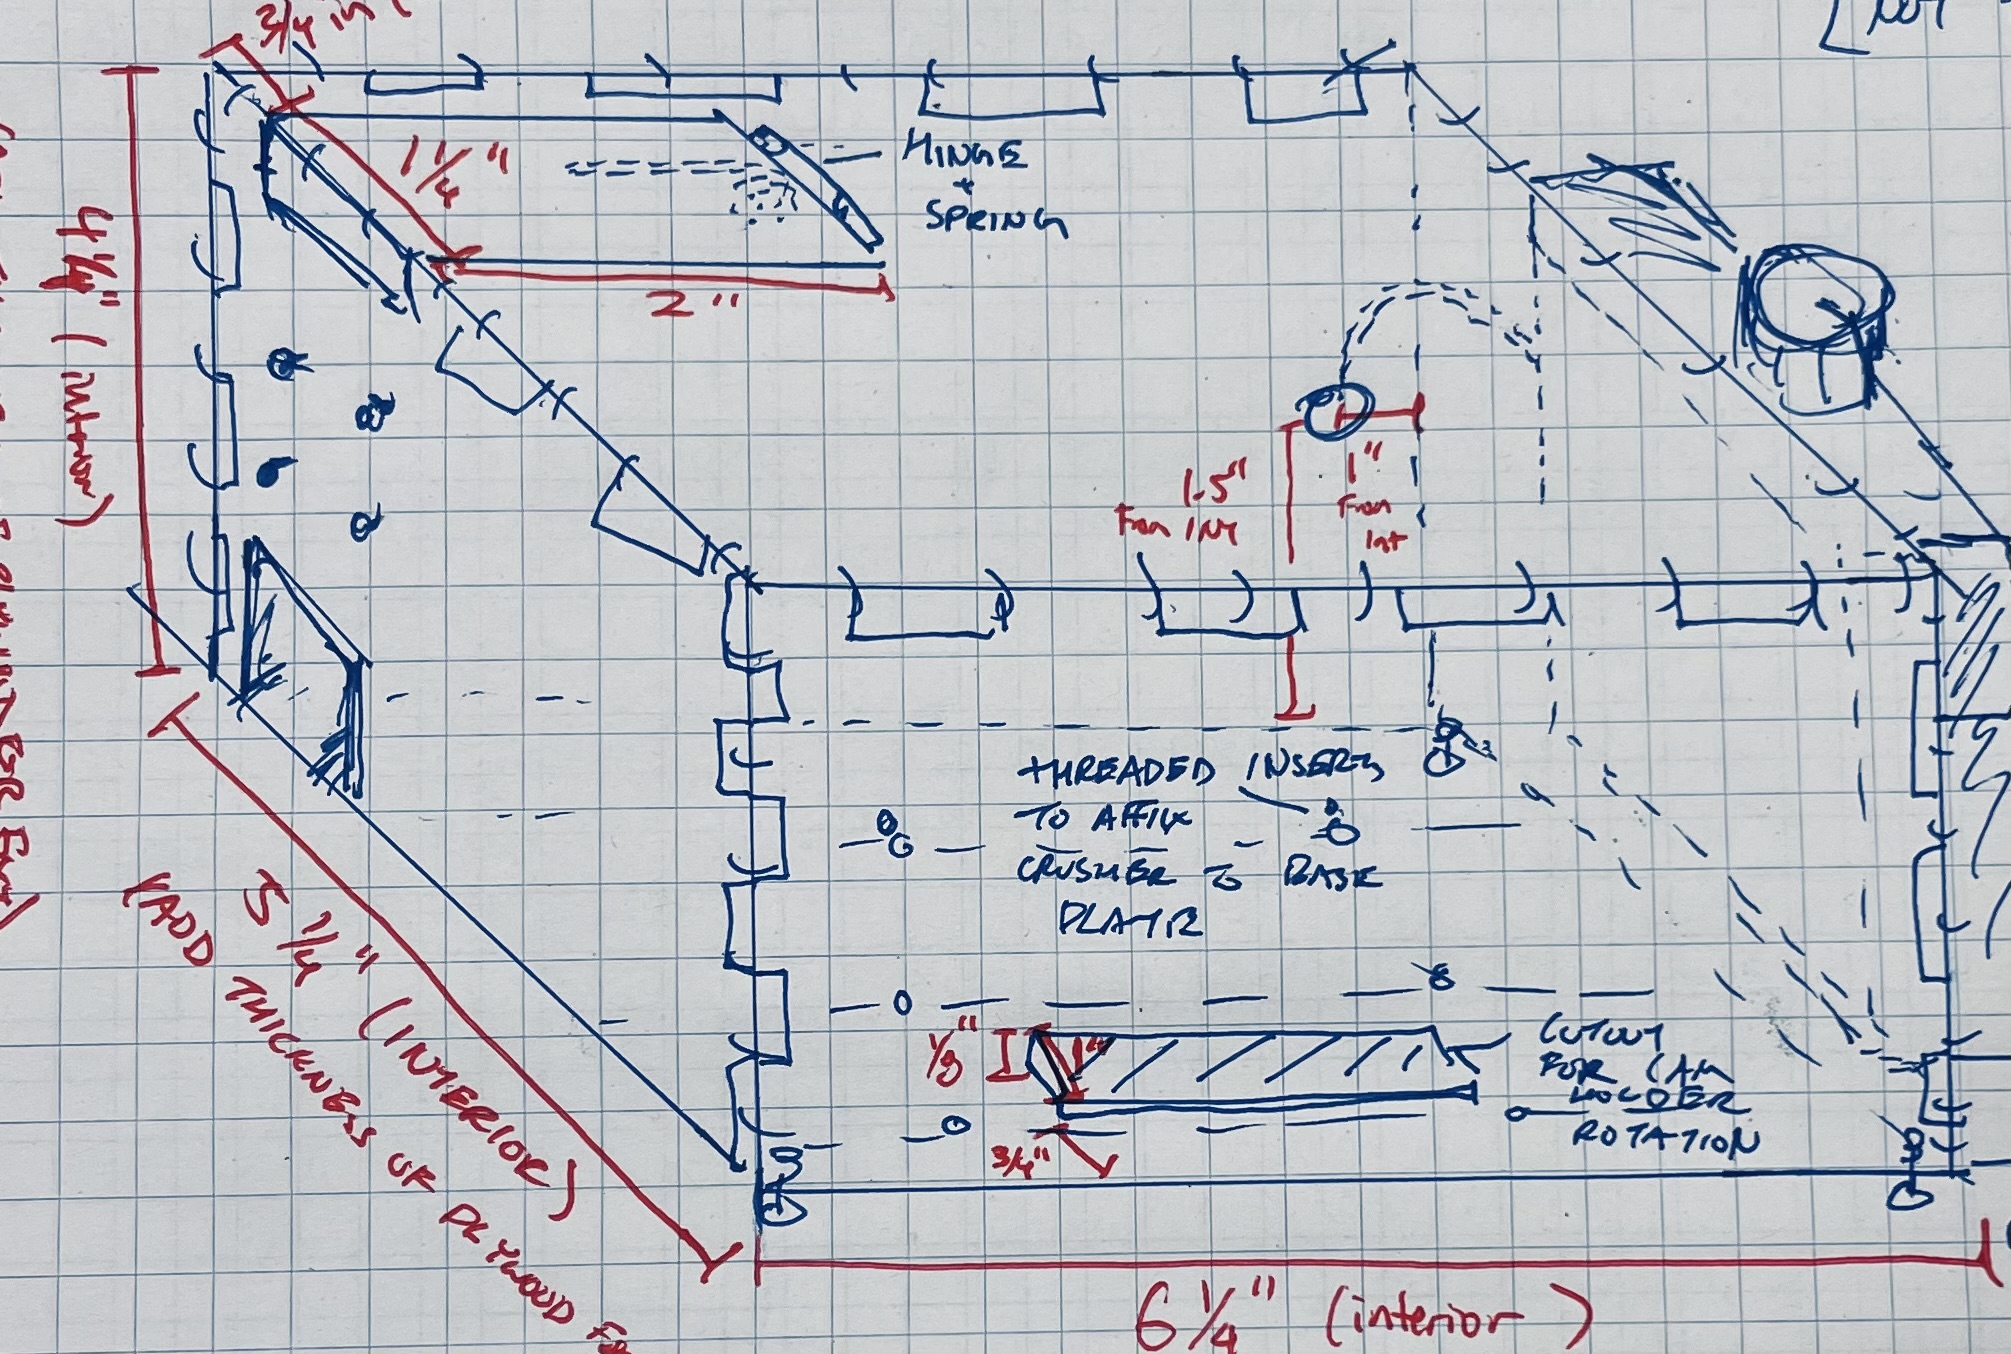 3/4 in
HINGE
+
SPRING
1 1/4"
2"
4 1/4" (interior)
1.5"
From INT
1"
From
Int
THREADED INSERTS
TO AFFIX
CRUSHER TO BASE
PLATE
1/8"
1"
3/4"
CUTOUT
FOR CAM
HOLDER
ROTATION
5 1/4" (INTERIOR)
(ADD THICKNESS OF PLYWOOD FOR
6 1/4" (interior)